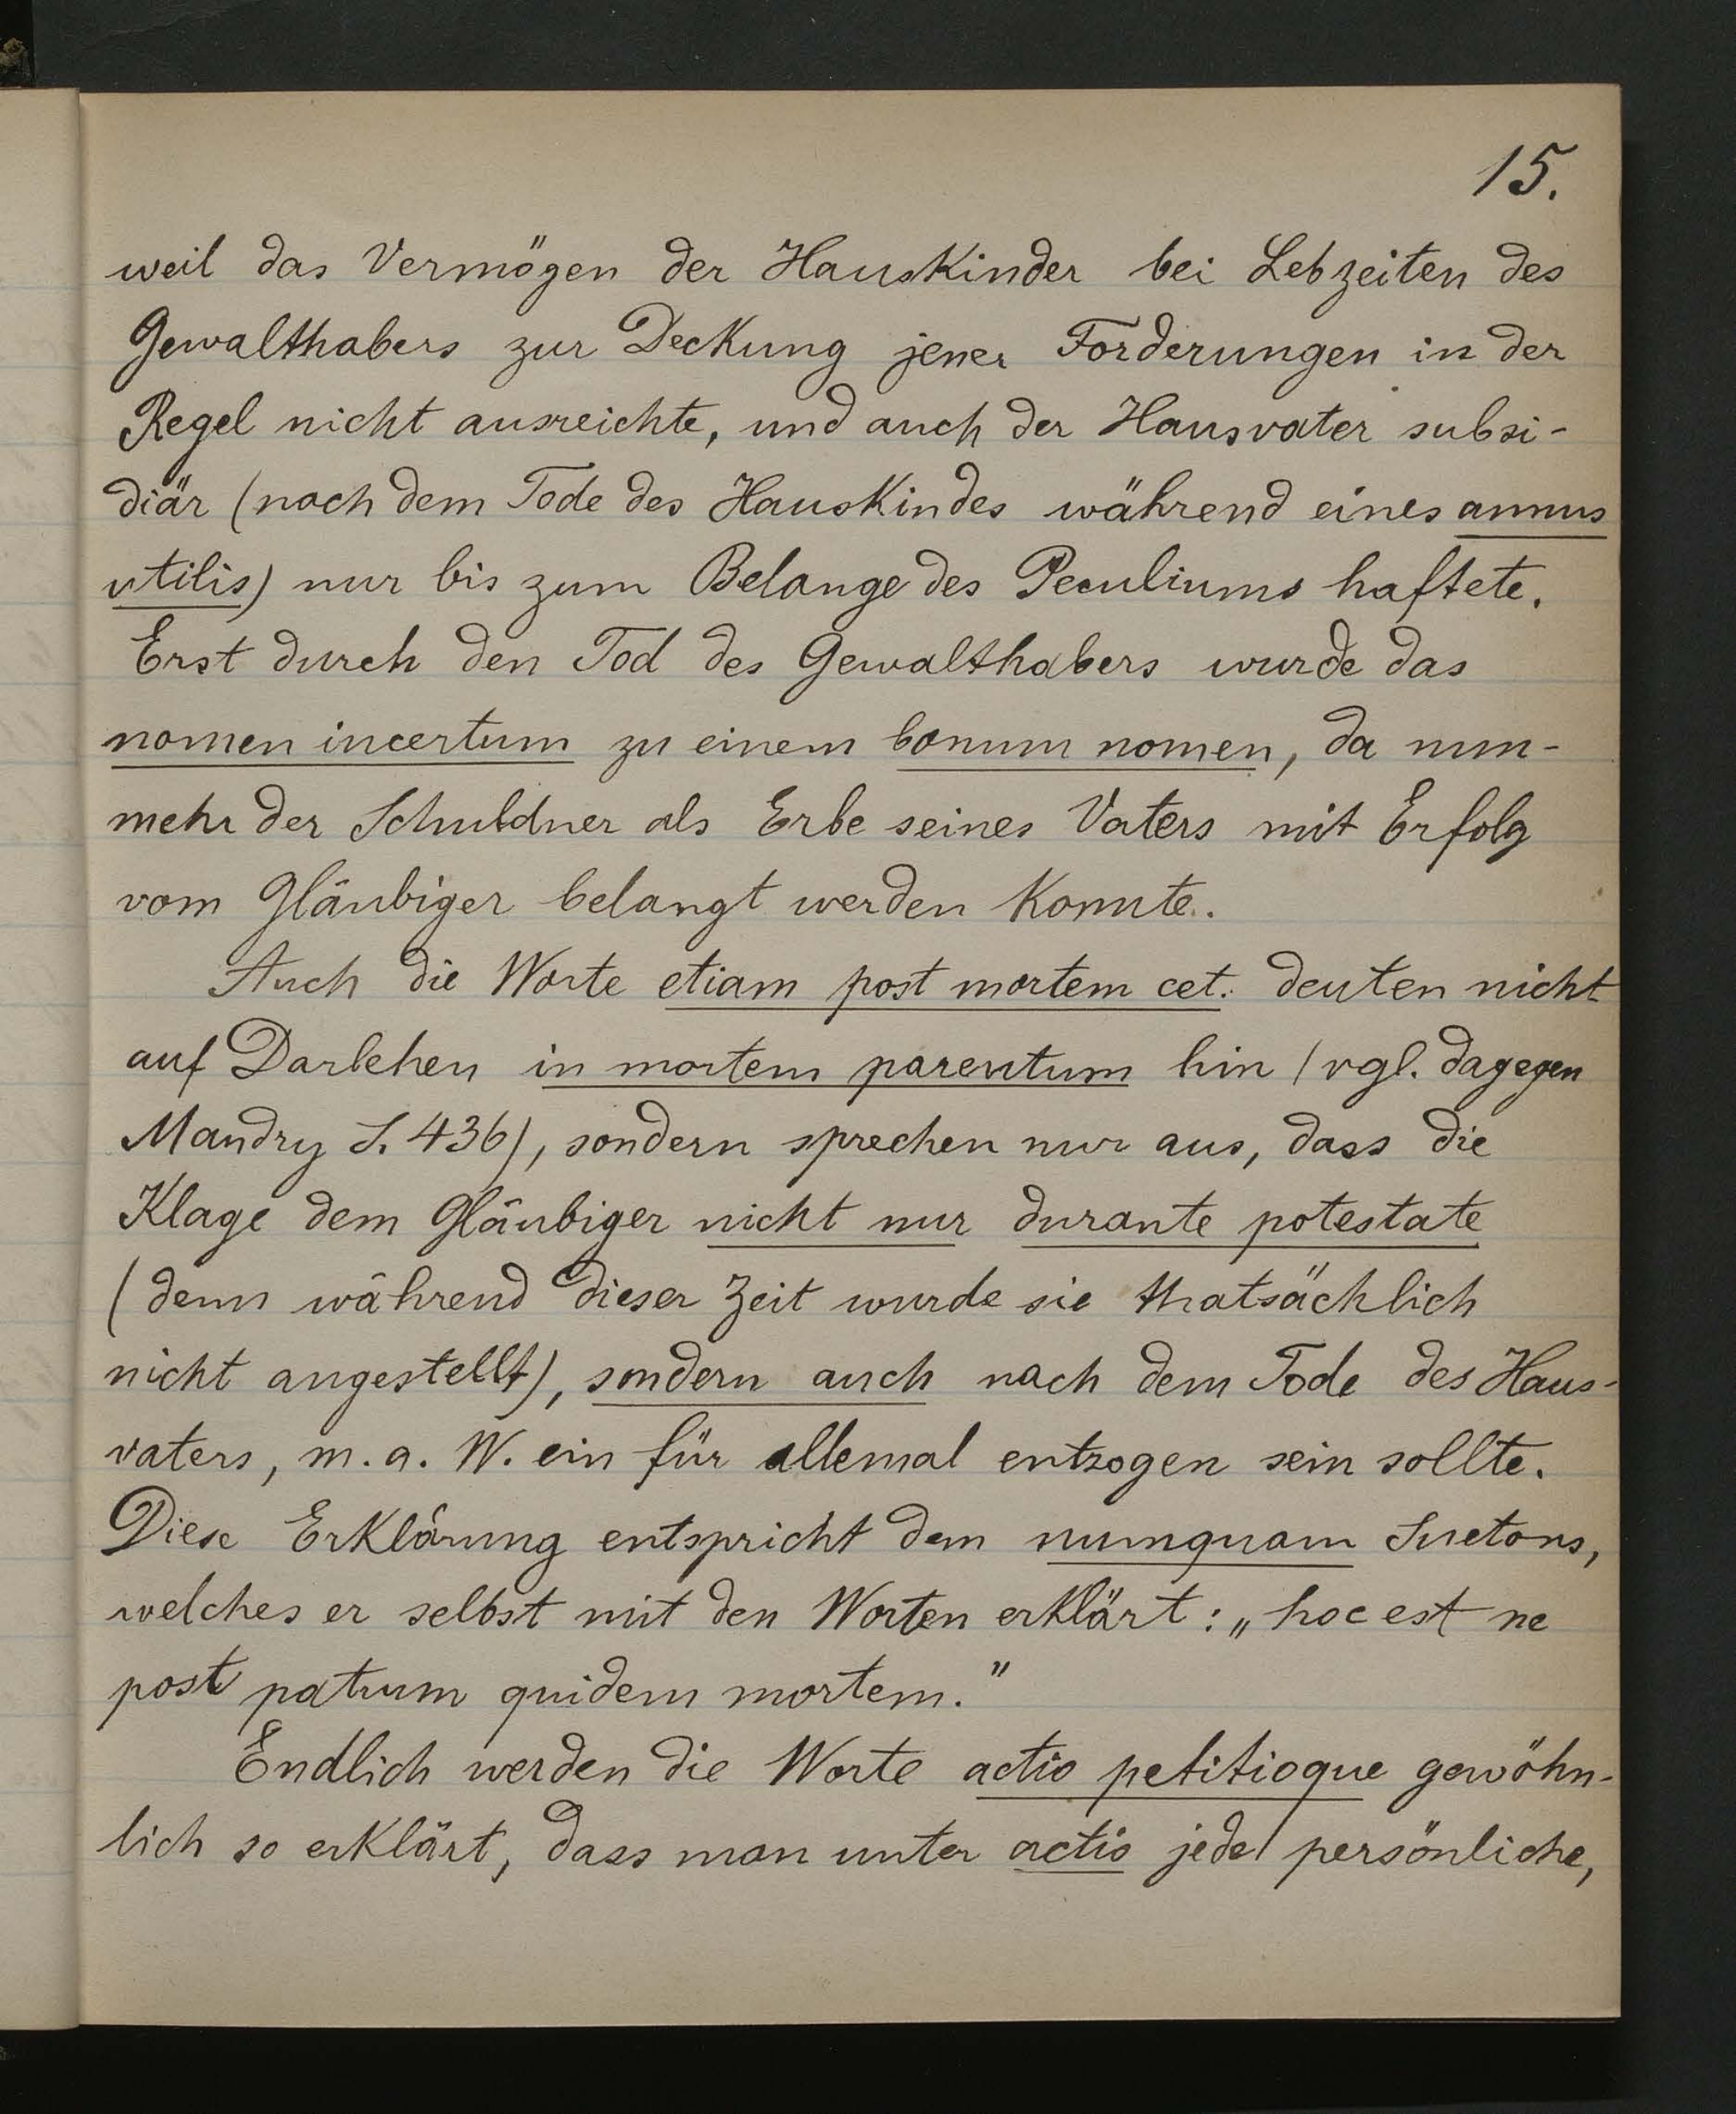 15.
weil das Vermögen der Hauskinder bei Lebzeiten des
Gewalthabers zur Deckung jener Forderungen in der
Regel nicht ausreichte, und auch der Hausvater subsi-
diär (nach dem Tode des Hauskindes während eines annus
utilis) nur bis zum Belange des Peculiums haftete.
Erst durch den Tod des Gewalthabers wurde das
nomen incertum zu einem bonum nomen, da nun-
mehr der Schuldner als Erbe seines Vaters mit Erfolg
vom Gläubiger belangt werden konnte.
Auch die Worte etiam post mortem cet. deuten nicht
auf Darlehen in mortem parentum hin (vgl. dagegen
Mandry S. 436), sondern sprechen nur aus, dass die
Klage dem Gläubiger nicht nur durante potestate
(denn während dieser Zeit wurde sie thatsächlich
nicht angestellt), sondern auch nach dem Tode des Haus-
vaters, m. a. W. ein für allemal entzogen sein sollte.
Diese Erklärung entspricht dem numquam Suetons,
welches er selbst mit den Worten erklärt: „hoc est ne
post patrum quidem mortem."
Endlich werden die Worte actio petitioque gewöhn-
lich so erklärt, dass man unter actio jede persönliche,